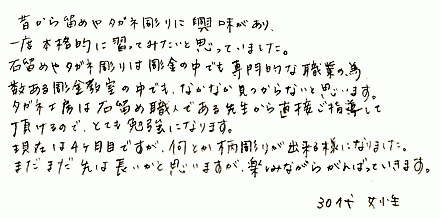 昔から留めやタガネ彫りに興味があり、
一度本格的に習ってみたいと思っていました。
石留めやタガネ彫りは彫金の中でも専門的な職業の為
数ある彫金教室の中でも、なかなか見つからないと思います。
タガネ工房は石留め職人である先生から直接ご指導して
頂けるので、とても勉強になります。
現在は4ヶ月目ですが、何とか柄彫りが出来る様になりました。
まだまだ先は長いかと思いますが、楽しみながらがんばっていきます。
30代 女性